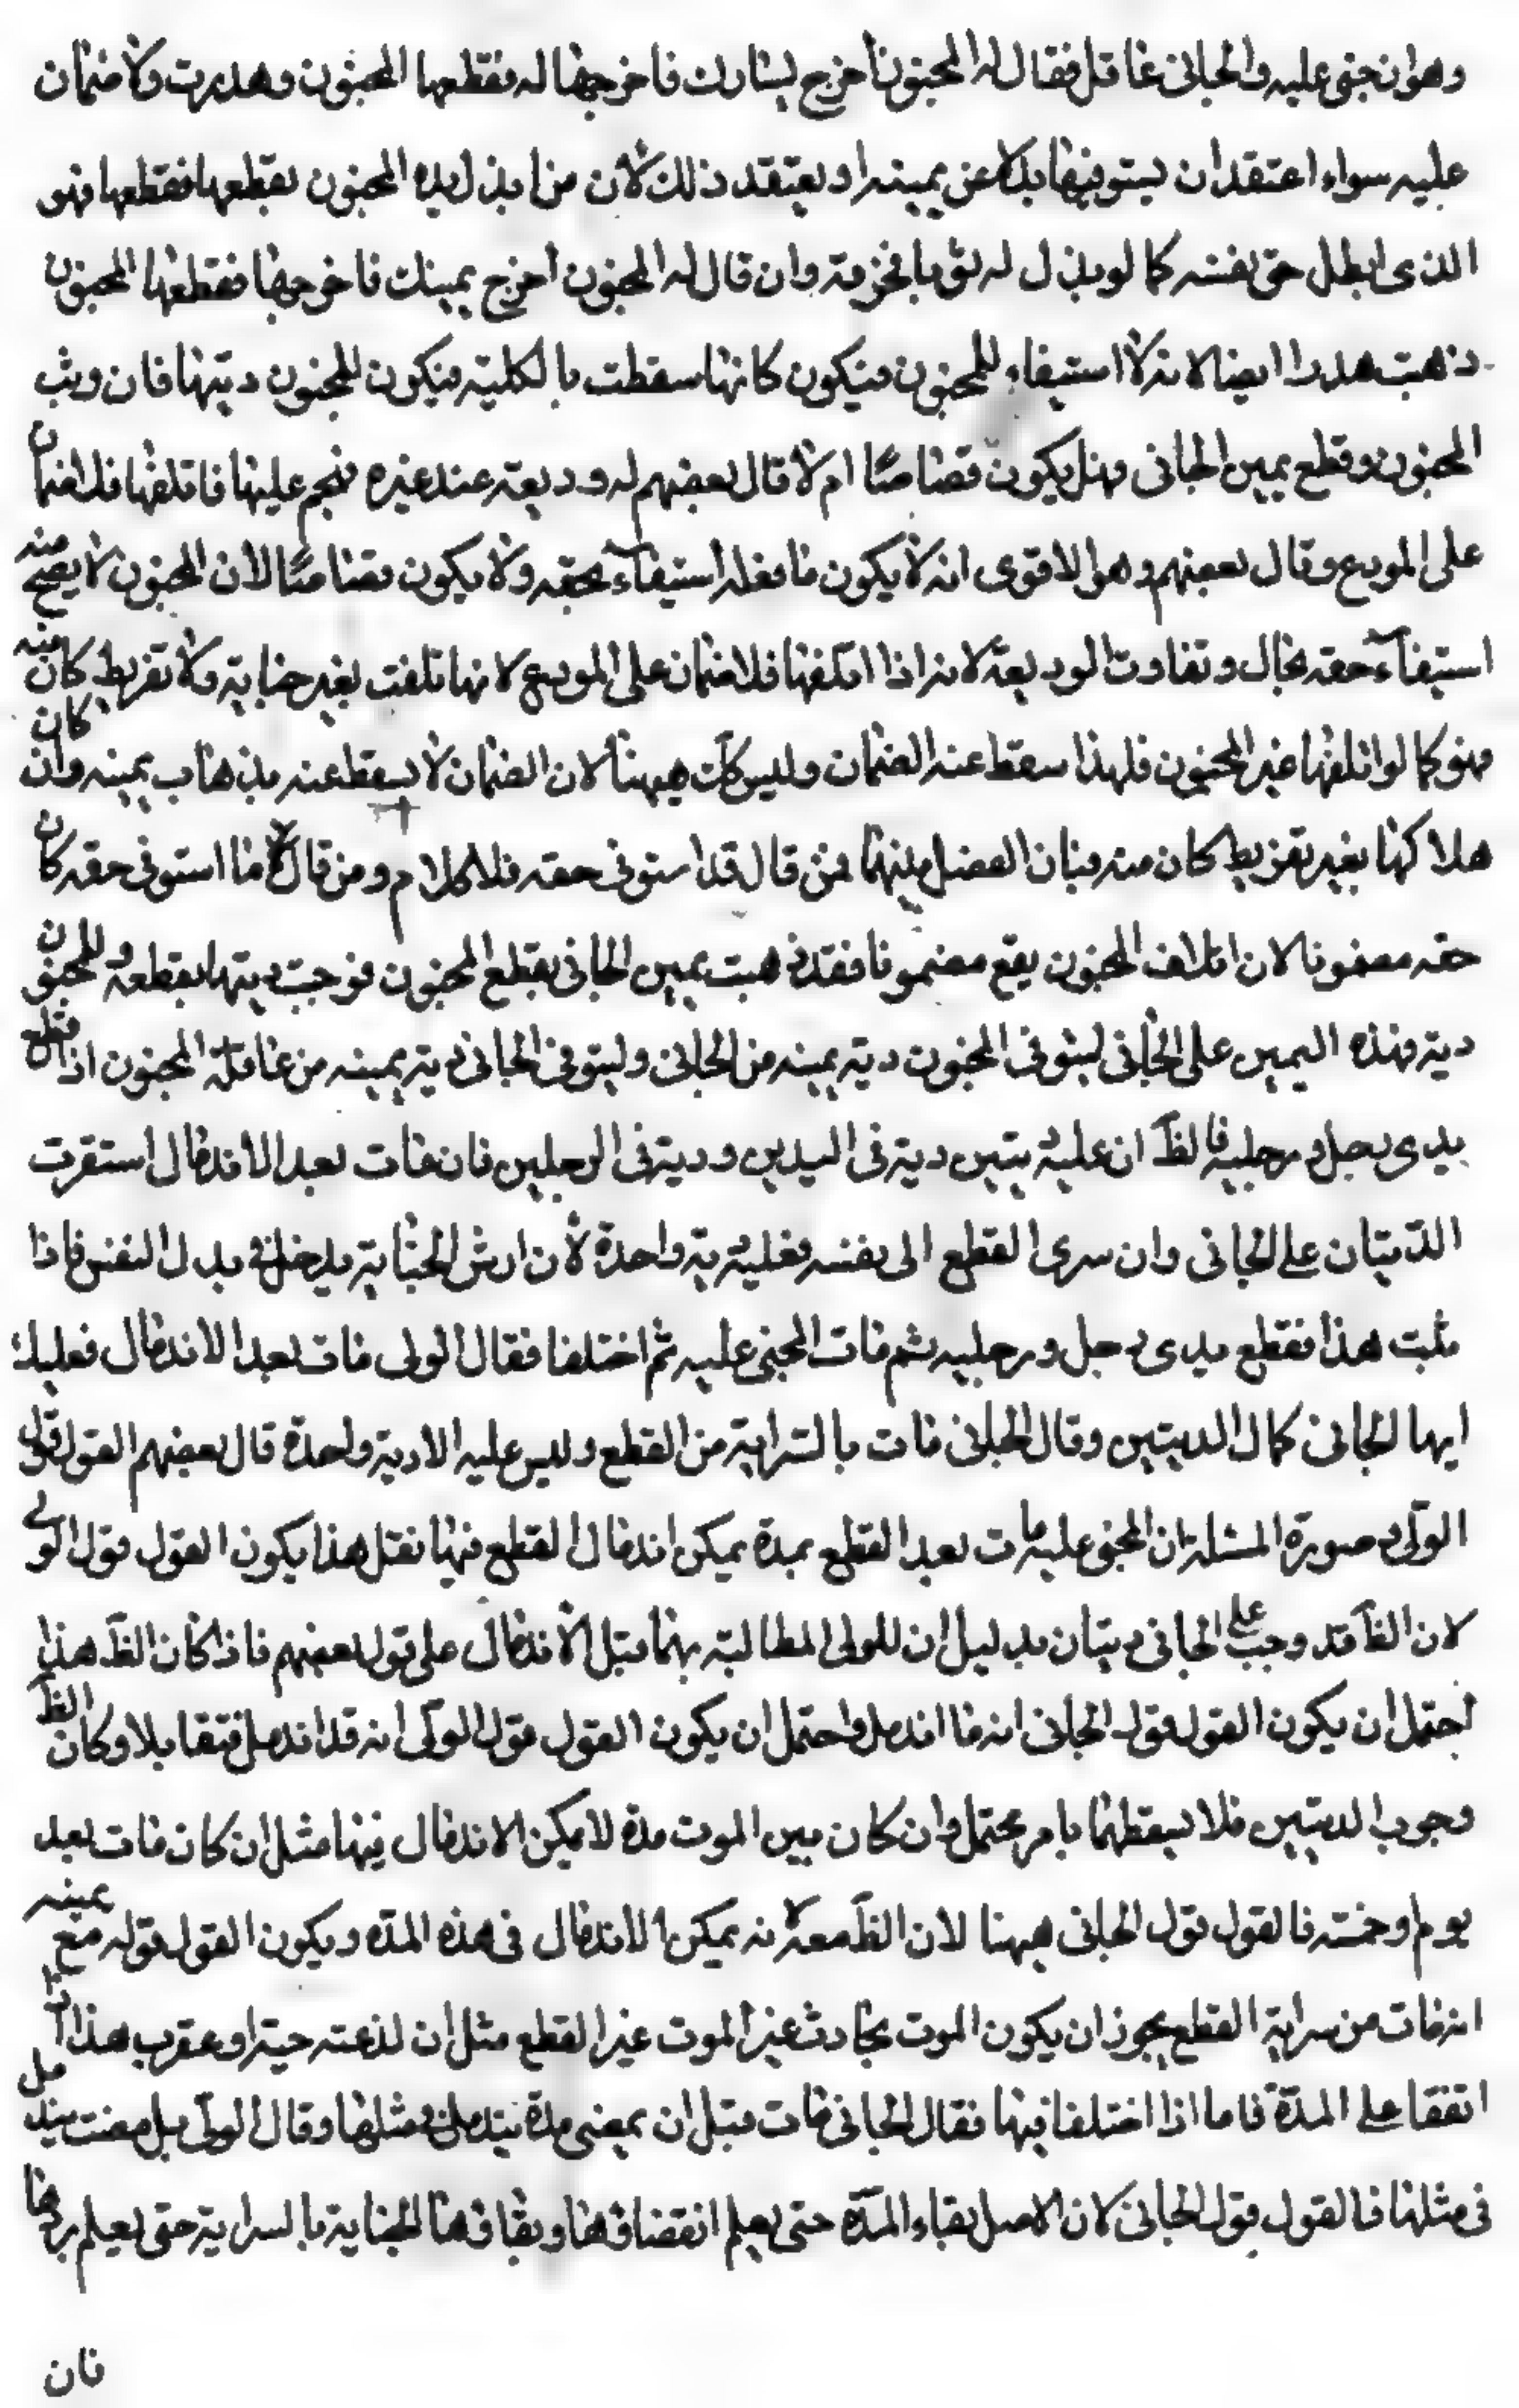 وهو ان جنى عليه والجاني عاقل فقال له المجنون اخرج يسارك فاخرجها له فقطعها المجنون وهدرت ولا ضمان
عليه سواء اعتقد ان يستوفيها بدلا عن يمينه او يعتقد ذلك لان من ابذل يده المجنون يقطعها فقطعها فهو
الذى ابطل حق نفسه كما لو بذل له ثوبا فخرقه وان قال له المجنون اخرج يمينك فاخرجها فقطعها المجنون
ذهبت هدرا ايضا لانه لا استيفاء للمجنون فيكون كانها سقطت بالكلية فيكون للمجنون ديتها فان وثب
المجنون وقطع يمين الجانى فهل يكون قصاصًا ام لا قال بعضهم له وديعة عند غيره فهجم عليها فاتلفها فلا ضمان
على المودع وقال بعضهم وهو الاقوى انه لا يكون ما فعله استيفآء لحقه ولا يكون قصاصًا لان المجنون لا يصح منه
استيفآء حقه بحال وتفاوت الوديعة لانه اذا اتلفها فلا ضمان على المودع لانها تلفت بغير جناية ولا تفريط كان منه
فهو كما لو اتلفها غير المجنون فلهذا سقط عنه الضمان وليس كك هيهنا لان الضمان لا يسقط عنه بذهاب يمينه وان كان
هلاكها بغير تفريط كان منه فبان الفصل بينهما فمن قال قد استوفى حقه فلا كلام ومن قال لا ما استوفى حقه كان
حقه مضمونا لان اتلاف المجنون يقع مضمونا فقد ذهبت يمين الجانى بقطع المجنون فوجبت ديتها بقطعه وللمجنون
دية فهذه اليمين على الجانى ليستوفى المجنون دية يمينه من الجانى وليتوفى الجانى دية يمينه من عاقلة المجنون اذا قطع
يدى رجل ورجليه فالظّ ان عليه ديتين دية فى اليدين ودية فى الرجلين فان مات بعد الاندمال استقرت
الدّيتان على الجانى وان سرى القطع الى نفسه فعليه دية واحدة لان ارش الجناية يدخل فى بدل النفس فاذا
ثبت هذا فقطع يدى رجل ورجليه ثم مات المجنى عليه ثم اختلفا فقال الولى مات بعد الاندمال فعليك
ايها الجانى كمال الديتين وقال الجانى مات بالسّراية من القطع وليس عليه الا دية واحدة قال بعضهم القول قول
الولى وصورة المسئلة ان المجنى عليه مات بعد القطع بمدة يمكن اندمال القطع فيها نقل هذا يكون القول قول الولى
لان الظّ قد وجب على الجانى ديتان بدليل ان للولى المطالبة بهما قبل الاندمال على قول بعضهم فاذا كان الظّ هذا
احتمل ان يكون القول قول الجانى انه ما اندمل واحتمل ان يكون القول قول الولى انه قد اندمل فتقابلا وكان الظّ
وجوب الديتين فلا يسقطهما بامر محتمل وان كان بين الموت مدة لا يمكن الاندمال فيها مثل ان كان مات بعد
يوم وخمسة فالقول قول الجانى هيهنا لان الظّ معه لا نه يمكن الاندمال فى هذه المدّه ويكون القول قوله مع يمينه
انه مات من سراية القطع يجوز ان يكون الموت بحادث غير الموت غير القطع مثل ان لذعته حية او عقرب هذا اذا
اتفقا على المدّة فاما اذا اختلفا فيها فقال الجانى مات قبل ان يمضى مدة يندمل فى مثلها وقال الولى بل مضت يندمل
فى مثلها فالقول قول الجانى لان الاصل بقاء المدّة حتى يعلم انقضاؤها وبقاؤها الجناية بالسراية حتى يعلم برؤها
فان